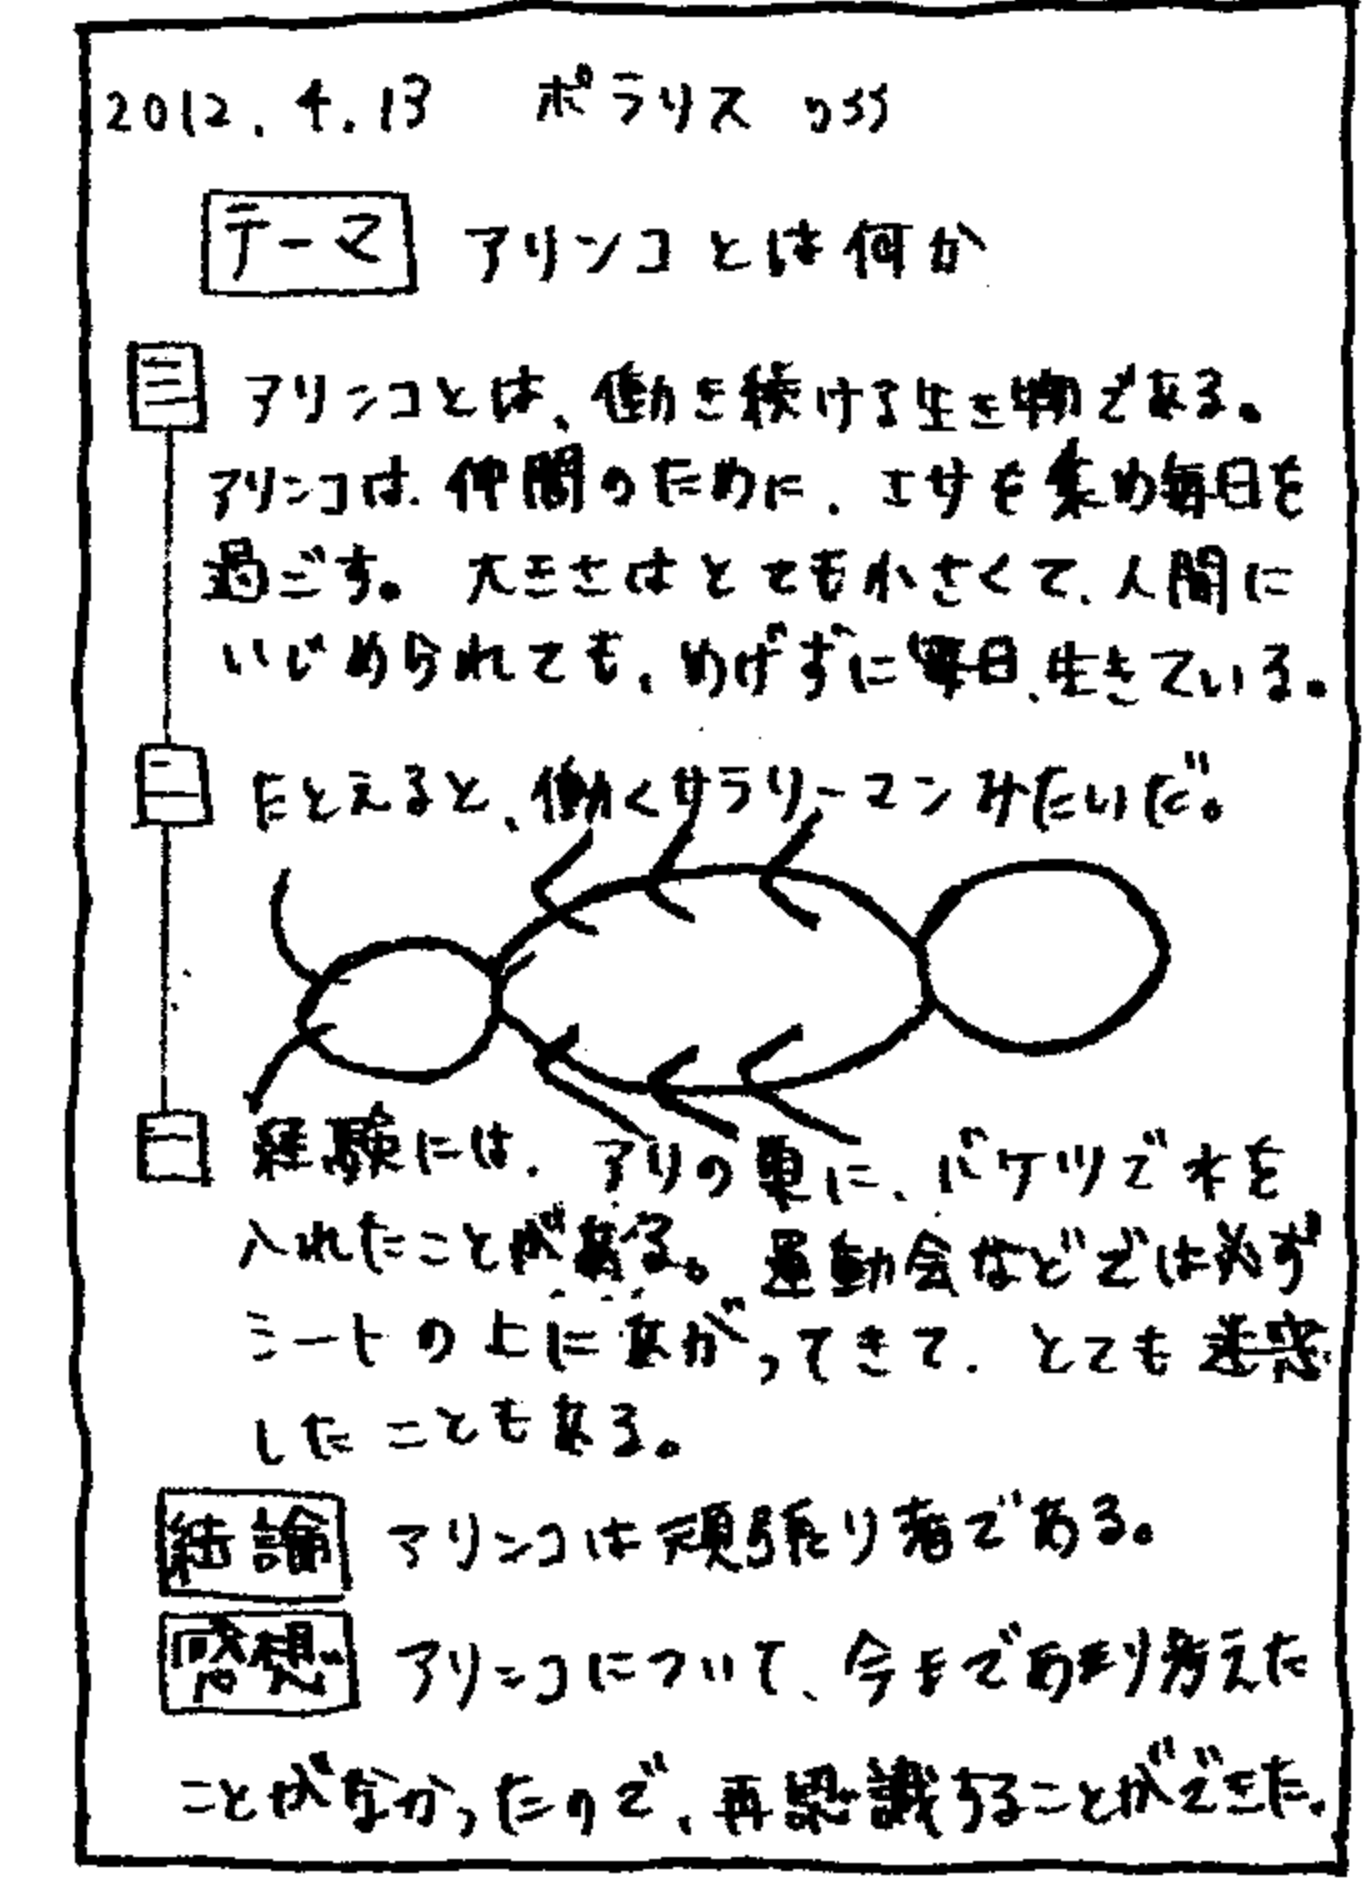 2012.4.13 ポラリス
テーマ アリンコとは何か
三 アリンコとは、働き続ける生き物である。
アリンコは、仲間のために、エサを集め毎日を
過ごす。大きさはとても小さくて、人間に
いじめられても、めげずに毎日、生きている。
二 たとえると、働くサラリーマンみたいだ。
経験には、アリの巣に、バケツで水を
入れたことがある。運動会などでは必ず
シートの上にあがってきて、とても迷惑
したこともある。
結論 アリンコは頑張り者である。
感想 アリンコについて、今まであまり考えた
ことがなかったので、再認識することができた。